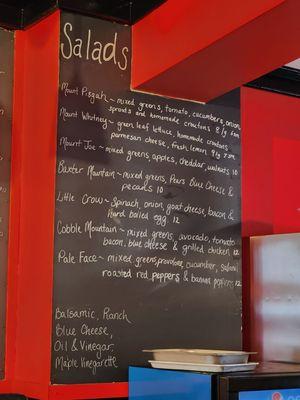 Salads
Mount Pisgah ~ mixed greens, tomato, cucumbers, onion,
sprouts and homemade croutons 8/g 5 sm
Mount Whitney ~ green leaf lettuce, homemade croutons
parmesan cheese, fresh lemon 9/g 7 sm
Mount Joe ~ mixed greens, apples, cheddar, walnuts 10
Baxter Mountain ~ mixed greens, Pears Blue Cheese &
pecans 10
Little Crow ~ Spinach, onion, goat cheese, bacon &
Hard boiled egg 12
Cobble Mountain ~ mixed greens, avocado, tomato
bacon, blue cheese & grilled chicken 12
Pale Face ~ mixed greens, provolone cucumber, salami
roasted red peppers & banana peppers 12
Balsamic, Ranch
Blue Cheese,
Oil & Vinegar,
Maple Vinegarette